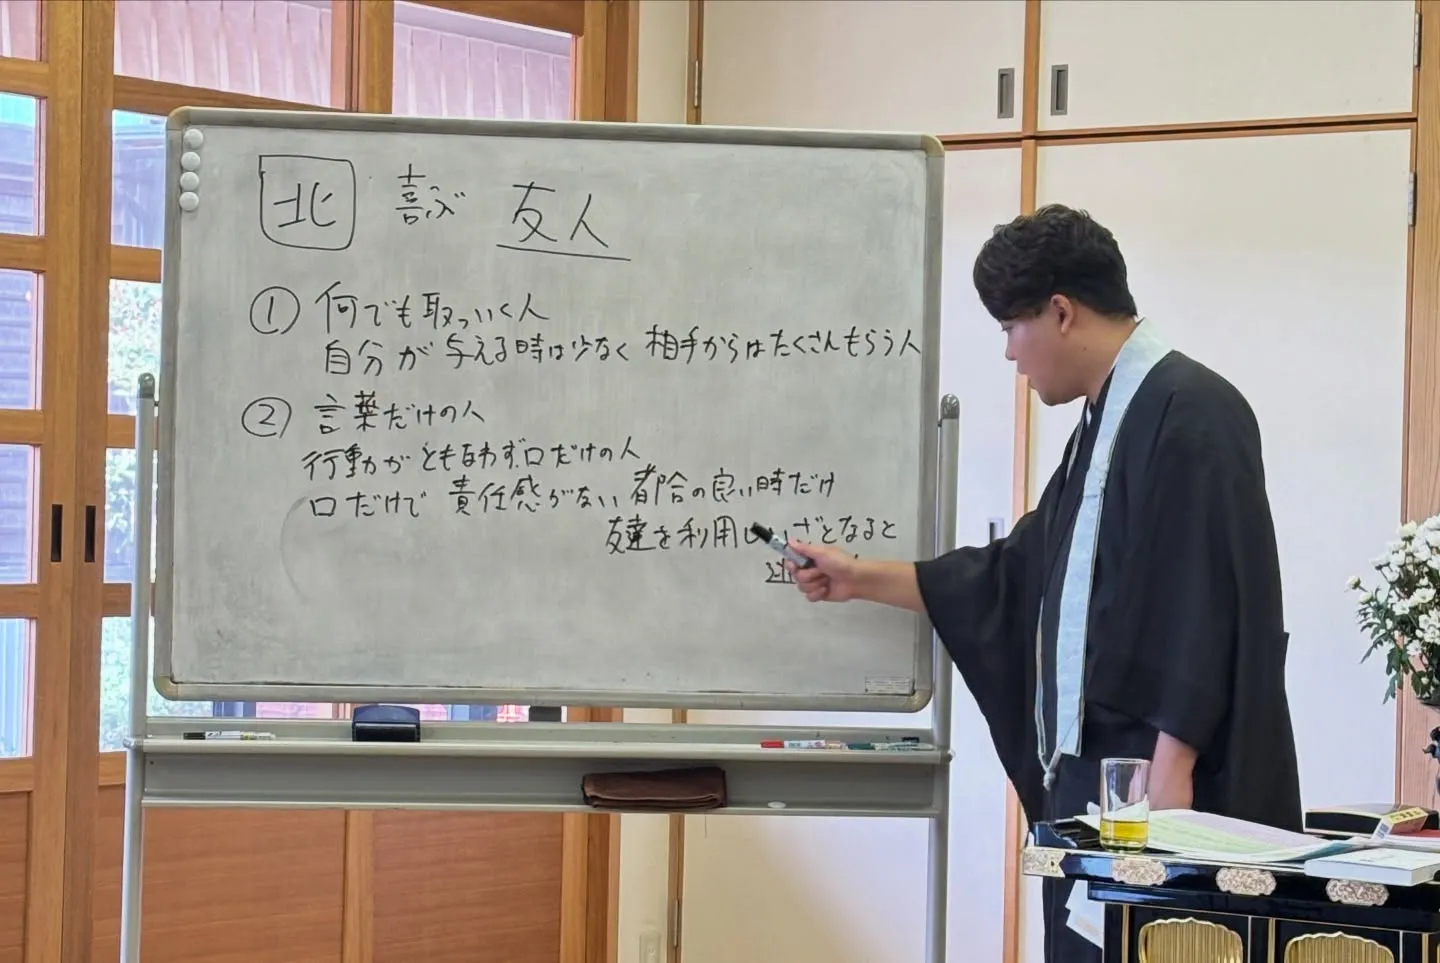 北 喜ぶ 友人
① 何でも取っいく人
自分が与える時は少なく 相手からはたくさんもらう人
② 言葉だけの人
行動がともなわず口だけの人
口だけで 責任感がない 都合の良い時だけ
友達を利用し いざとなると